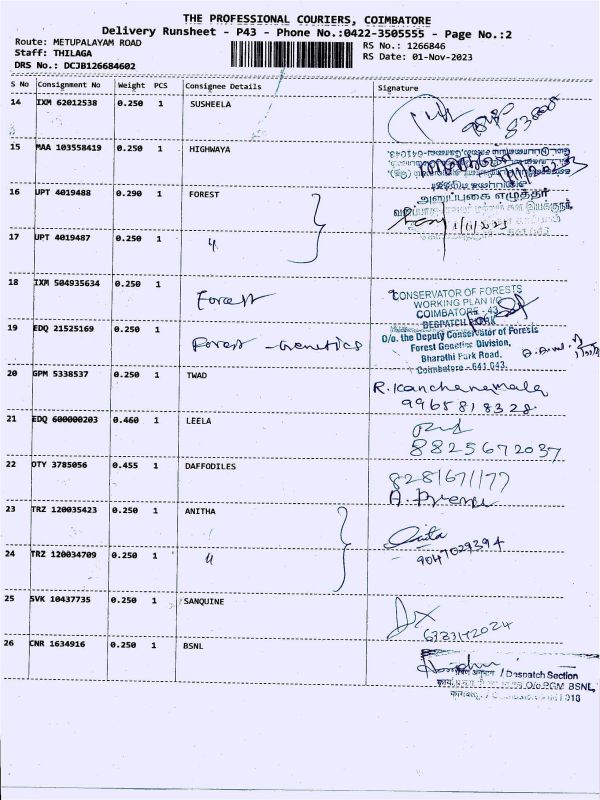 THE PROFESSIONAL COURIERS, COIMBATORE
Delivery Runsheet - P43 - Phone No.:0422-3505555 - Page No.:2
Route: METUPALAYAM ROAD RS No.: 1266846
Staff: THILAGA RS Date: 01-Nov-2023
DRS No.: DCJB126684602
S No Consignment No Weight PCS Consignee Details Signature
14 IXM 62012538 0.250 1 SUSHEELA
15 MAA 103558419 0.250 1 HIGHWAYA
16 UPT 4019488 0.290 1 FOREST
அனுப்புகை எழுத்தர்
17 UPT 4019487 0.250 1 "
18 IXM 504935634 0.250 1 Forest
CONSERVATOR OF FORESTS
WORKING PLAN I/C
COIMBATORE - 43
DESPATCH CLERK
19 EDQ 21525169 0.250 1 Forest - Genetics
O/o. the Deputy Conservator of Forests
Forest Genetics Division,
Bharathi Park Road,
Coimbatore - 641 043.
20 GPM 5338537 0.250 1 TWAD R. Kanchanamala
9965818328
21 EDQ 600000203 0.460 1 LEELA
8825672037
22 OTY 3785056 0.455 1 DAFFODILES 8281671177
23 TRZ 120035423 0.250 1 ANITHA
24 TRZ 120034709 0.250 1 " 9047029394
25 SVK 10437735 0.250 1 SANQUINE
26 CNR 1634916 0.250 1 BSNL
/ Despatch Section
O/o PGM BSNL,